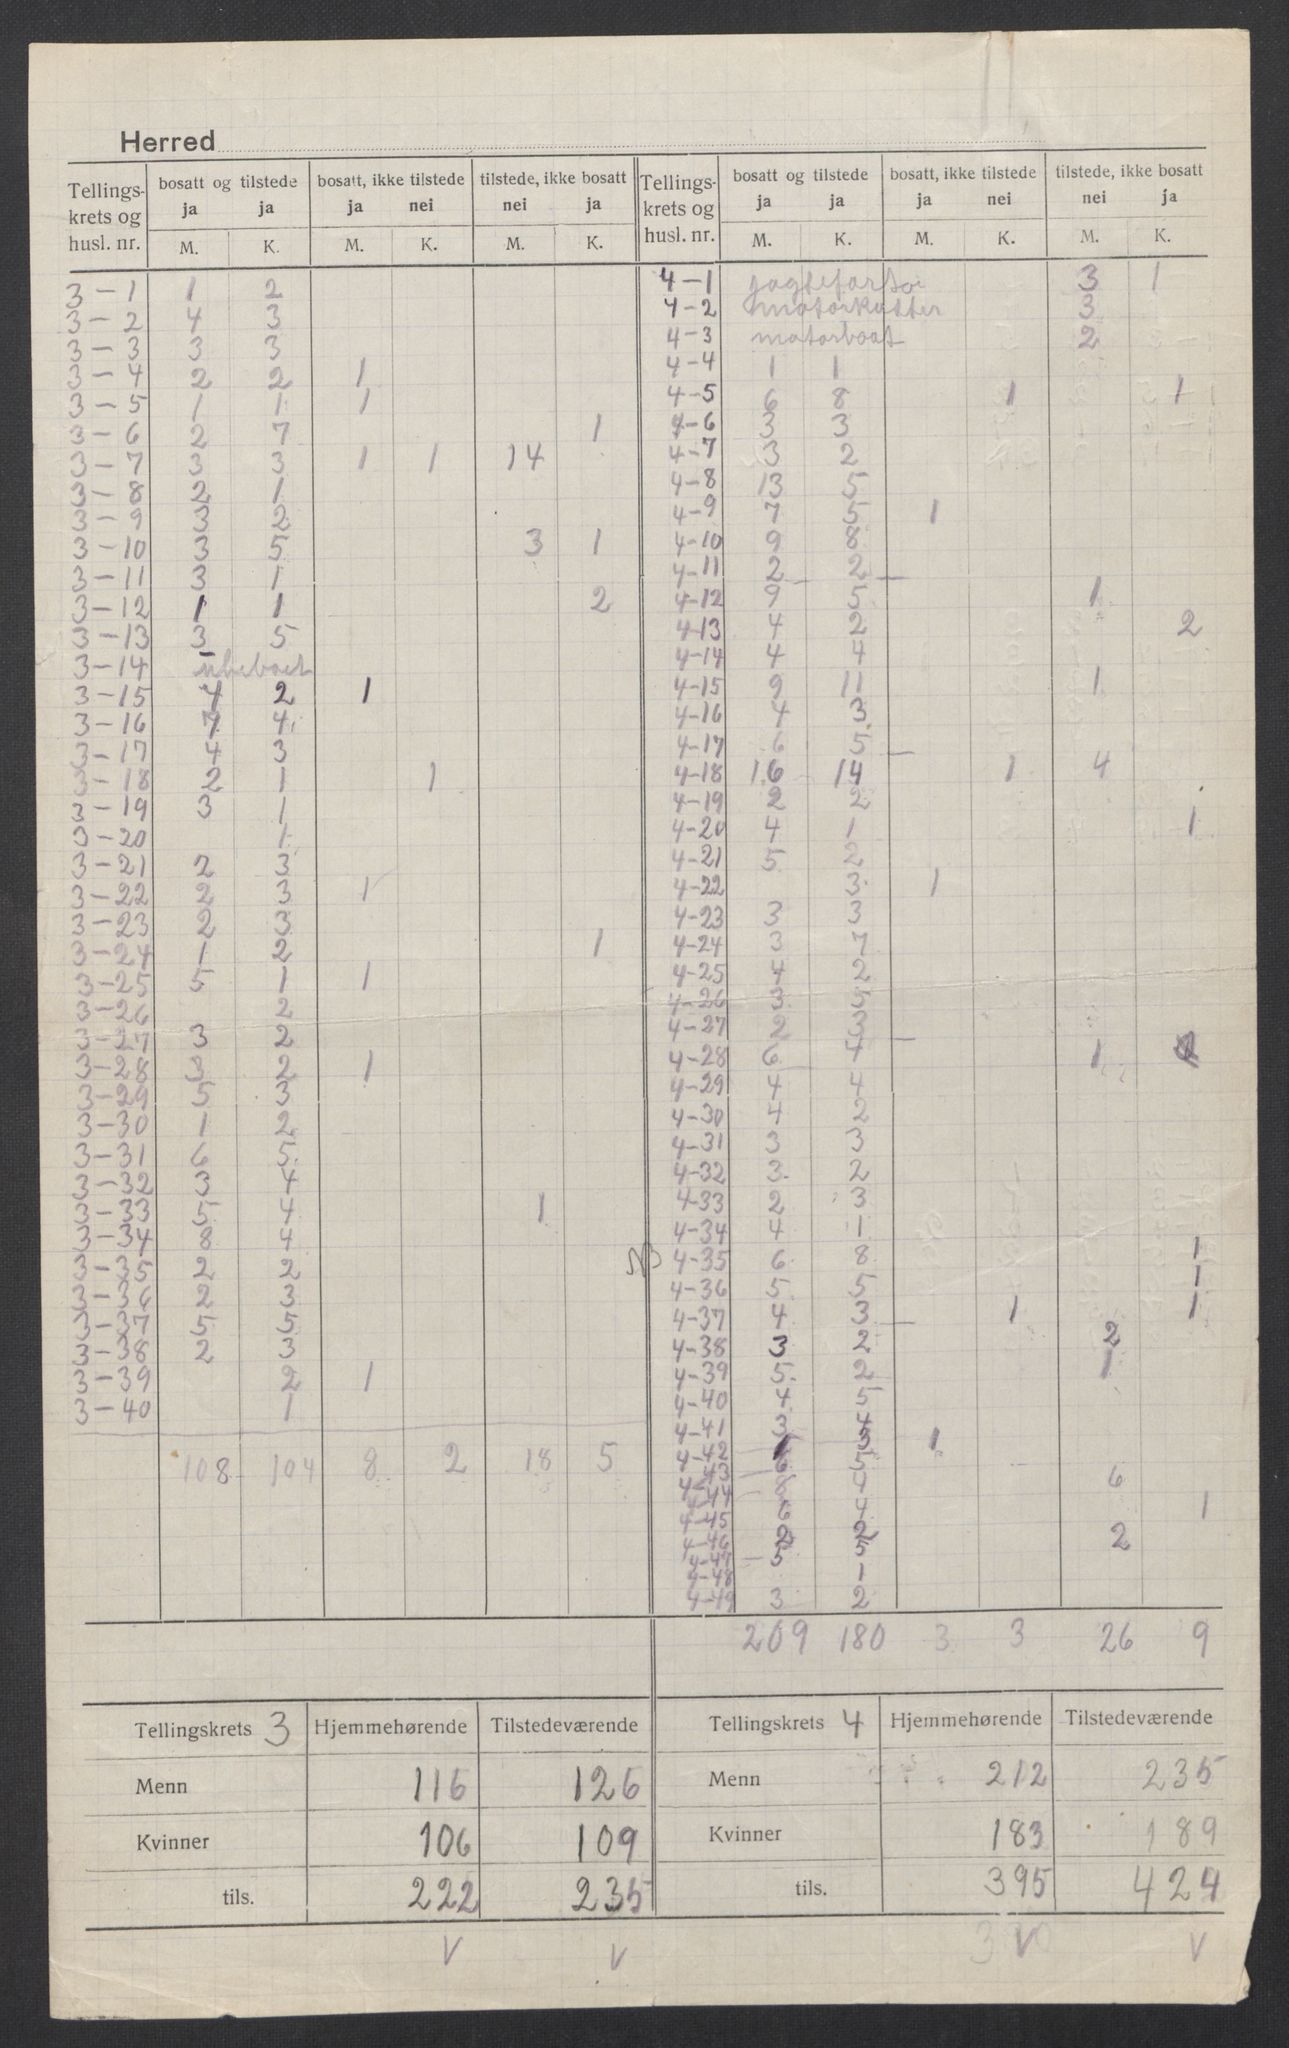 Herred
Tellings-krets og husl. nr. | bosatt og tilstede ja M. | ja K. | bosatt, ikke tilstede ja M. | nei K. | tilstede, ikke bosatt nei M. | ja K.
3-1 1 2
3-2 4 3
3-3 3 3
3-4 2 2 1
3-5 1 1 1
3-6 2 7 1
3-7 3 3 1 1 14
3-8 2 1
3-9 3 2
3-10 3 5 3 1
3-11 3 1
3-12 1 1 2
3-13 3 5
3-14 ubeboet
3-15 4 2 1
3-16 4
3-17 4 3
3-18 2 1 1
3-19 3 1
3-20 1
3-21 2 3
3-22 2 3 1
3-23 2 3
3-24 1 2 1
3-25 5 1 1
3-26 2
3-27 3 2
3-28 3 2 1
3-29 5 3
3-30 1 2
3-31 6 5
3-32 3 4
3-33 5 4 1
3-34 8 4
3-35 2 2
3-36 2 3
3-37 5 5
3-38 2 3
3-39 2 1
3-40 1
108 104 8 2 18 5
Tellings-krets og husl. nr. | bosatt og tilstede ja M. | ja K. | bosatt, ikke tilstede ja M. | nei K. | tilstede, ikke bosatt nei M. | ja K.
4-1 3 1
4-2 motorkutter 3
4-3 motorboat 2
4-4 1 1
4-5 6 8 1 1
4-6 3 3
4-7 3 2
4-8 13 5
4-9 7 5 1
4-10 9 8
4-11 2 2
4-12 9 5 1
4-13 4 2 2
4-14 4 4
4-15 9 11 1
4-16 4 3
4-17 6 5
4-18 16 14 1 4
4-19 2 2
4-20 4 1 1
4-21 5 2
4-22 3 1
4-23 3 3
4-24 3 7
4-25 4 2
4-26 3 5
4-27 2 3
4-28 6 4 1
4-29 4 4
4-30 4 2
4-31 3 3
4-32 3 2
4-33 2 3
4-34 4 1
NB 4-35 6 8 1
4-36 5 5 1
4-37 4 3 1 1
4-38 3 2 2
4-39 5 2 1
4-40 4 5
4-41 3 4
4-42 3 1
4-43 6 5
4-44 8 4 6
4-45 6 4 1
4-46 2 2
4-47 5 5 2
4-48 1
4-49 3 2
209 180 3 3 26 9
Tellingskrets 3 Hjemmehørende Tilstedeværende
Menn 116 126
Kvinner 106 109
tils. 222 235
V V
Tellingskrets 4 Hjemmehørende Tilstedeværende
Menn 212 235
Kvinner 183 189
tils. 395 424
V V